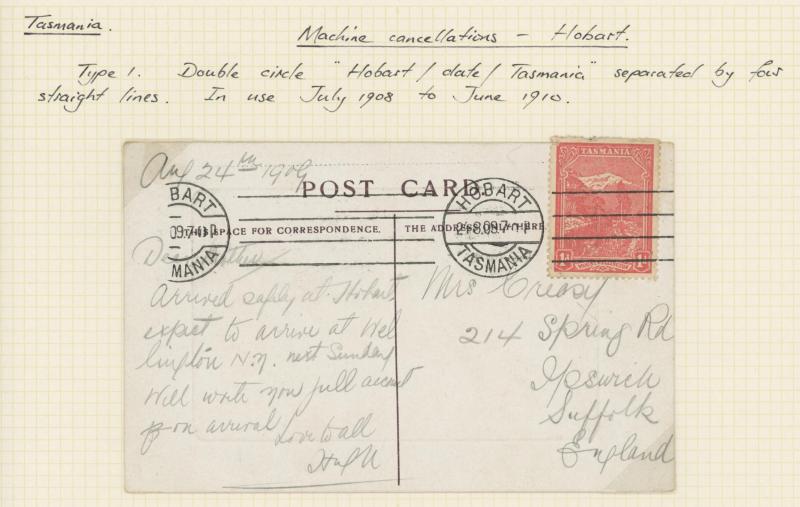 Tasmania.
Machine cancellations - Hobart.
Type 1. Double circle "Hobart / date / Tasmania" separated by four
straight lines. In use July 1908 to June 1910.
Aug 24th 1909
POST CARD
BART
MANIA
HOBART
24.8.09.7
TASMANIA
TASMANIA
1d
1d
THIS SPACE FOR CORRESPONDENCE.
THE ADDRESS HERE
Dear
Arrived safely at Hobart
expect to arrive at Wel
lington N.Z. next Sunday
Will write you full account
on arrival
Love to all
Mrs Creasy
214 Spring Rd
Ipswich
Suffolk
England